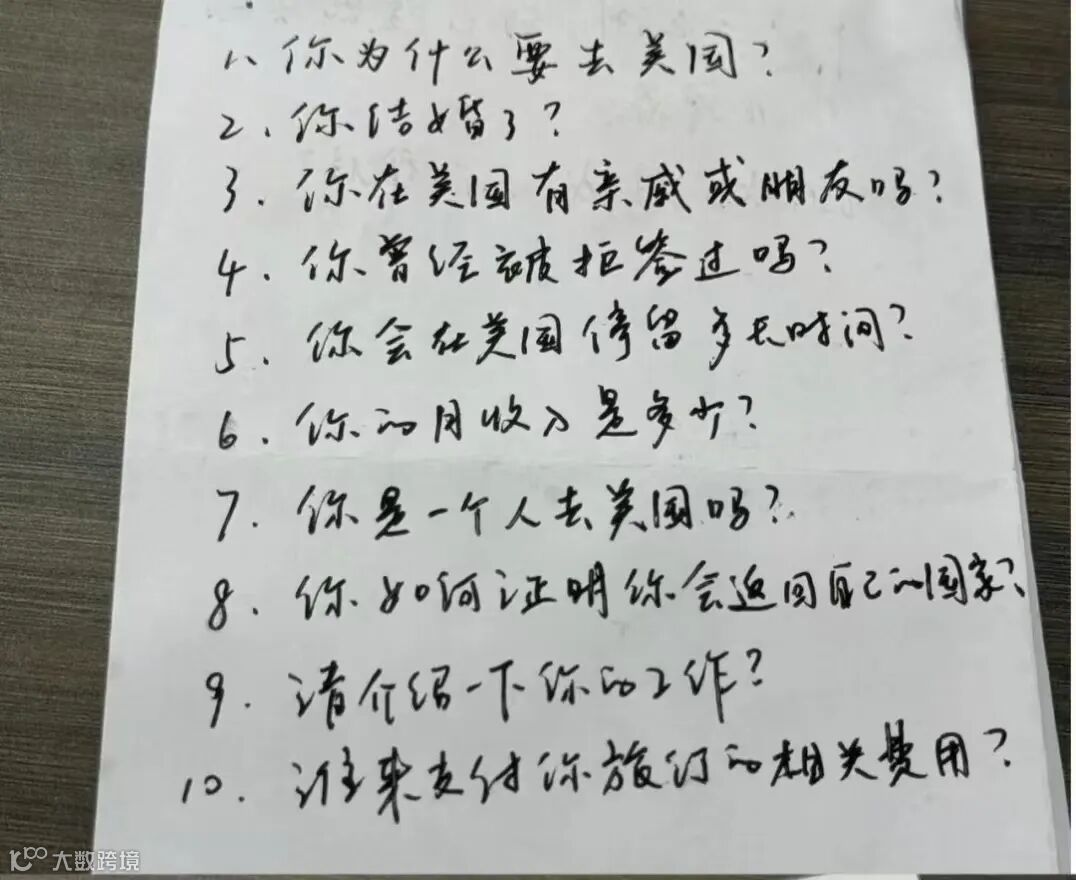 1、你为什么要去美国?
2、你结婚了?
3、你在美国有亲戚或朋友吗?
4、你曾经被拒签过吗?
5、你会在美国停留多长时间?
6、你的月收入是多少?
7、你是一个人去美国吗?
8、你如何证明你会返回自己的国家?
9、请介绍一下你的工作?
10、谁来支付你旅行的相关费用?
大数跨境